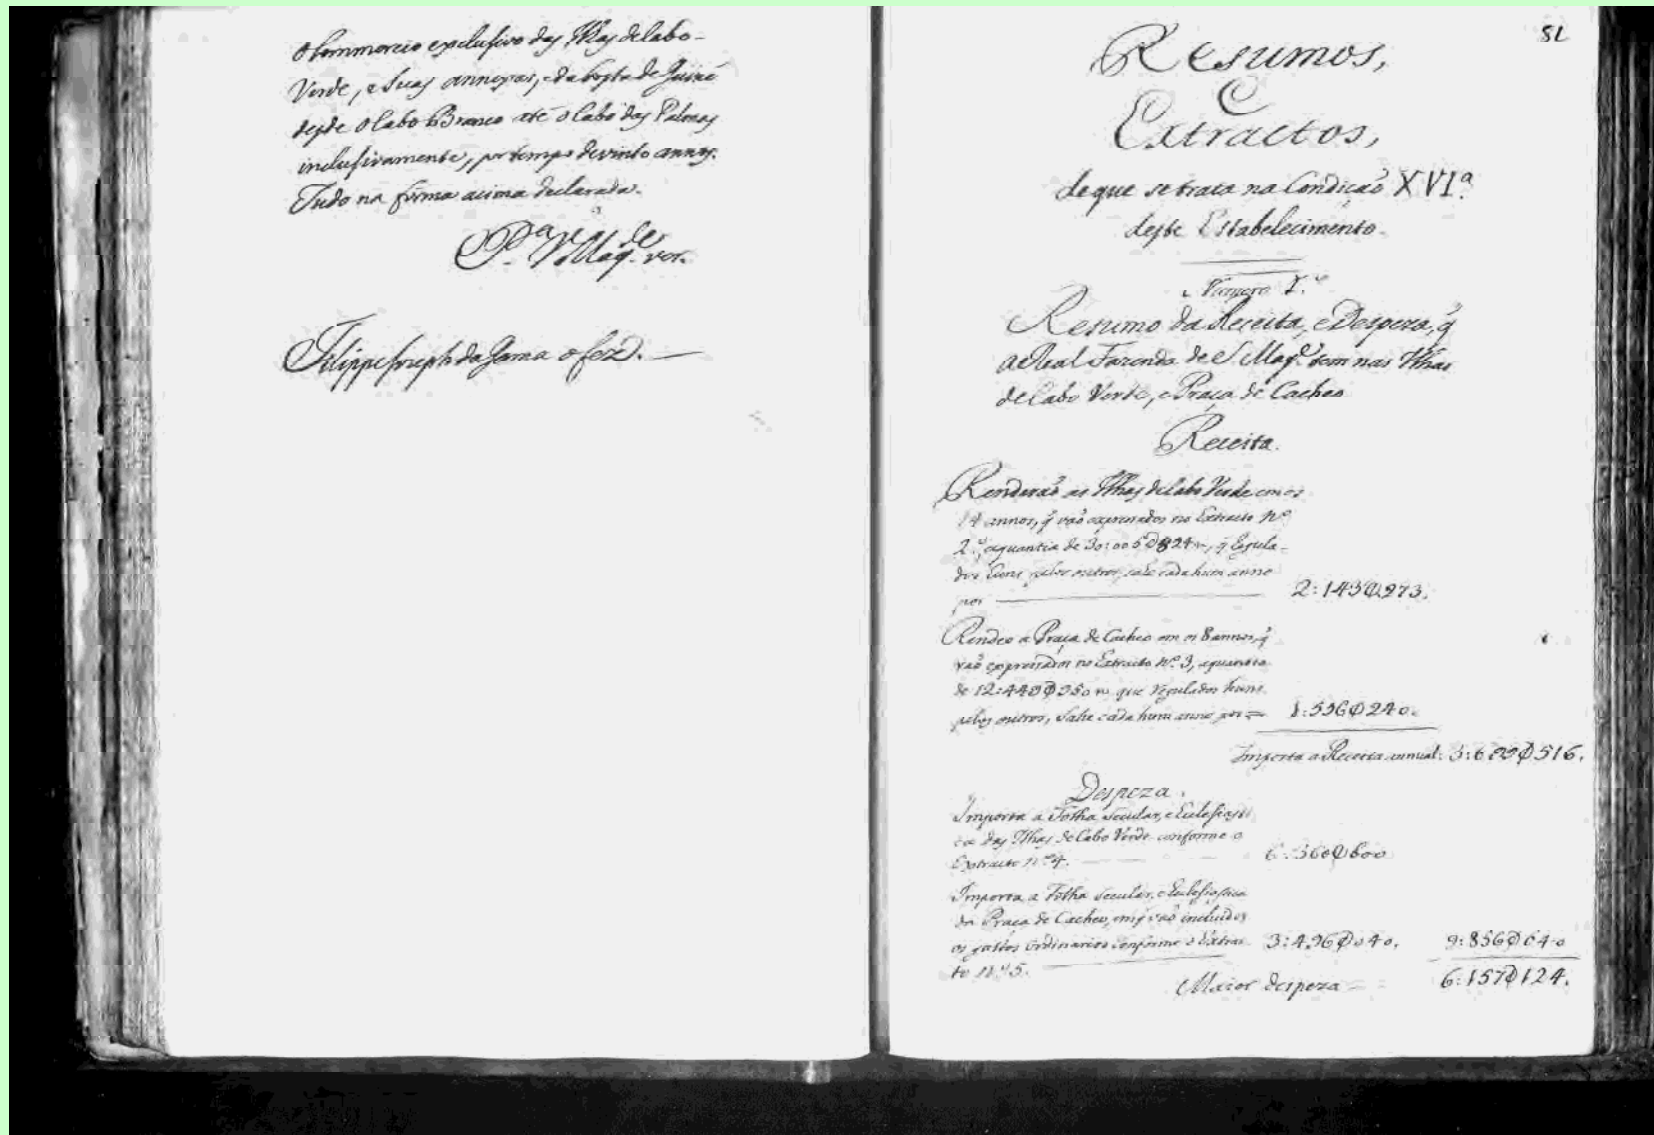 o Commercio exclusivo das Ilhas de Cabo-
Verde, e suas annexas, e da Costa de Guiné
desde o Cabo Branco até o Cabo das Palmas
inclusivamente, por tempo de vinte annos.
Tudo na forma acima declarada.
P.ª V. Mag.de ver.
Filippe Joseph da Gama o fez.
51
Resumos,
E
Extractos,
de que se trata na Condiçaõ XVI.ª
deste Estabelecimento.
Numero I.º
Resumo da Receita, e Despeza, q̃
a Real Fazenda de S. Mag.e tem nas Ilhas
de Cabo Verde, e Praça de Cacheo
Receita.
Renderaõ as Ilhas de Cabo Verde em os
14 annos, q̃ vaõ expressados no Extracto N.º
2.º, a quantia de 30:005$824 r., q̃ Regula-
dos huns pelos outros, sahe cada hum anno
por 2:143$273.
Rendeo a Praça de Cacheo em os 8 annos, q̃
vaõ expressados no Extracto N.º 3, a quantia
de 12:449$950 r. que Regulados huns
pelos outros, sahe cada hum anno por = 1:556$240.
Importa a Receita annual: 3:699$516.
Despeza.
Importa a Folha secular, e Eclesiasti
ca das Ilhas de Cabo Verde conforme o
Extracto n.º 4. 6:360$600
Importa a Folha secular, e Eclesiastica
da Praça de Cacheo, em q̃ vaõ incluidos
os gastos Ordinarios conforme o Extrac
to N.º 5. 3:496$040. 9:856$640
Maior despeza 6:157$124.